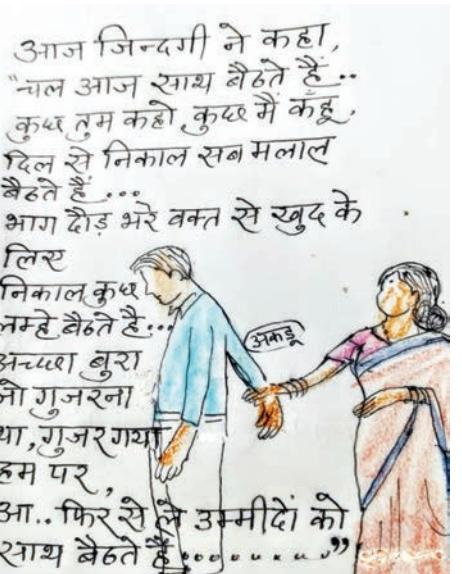 आज जिन्दगी ने कहा,
"चल आज साथ बैठते हैं..
कुछ तुम कहो, कुछ मैं कहूं,
दिल से निकाल सब मलाल
बैठते हैं ...
भाग दौड़ भरे वक्त से खुद के
लिए
निकाल कुछ
लम्हे बैठते है...
अकडू
अच्छा बुरा
जो गुजरना
था, गुजर गया
हम पर,
आ.. फिर से ले उम्मीदों को
साथ बैठते हैं..........."